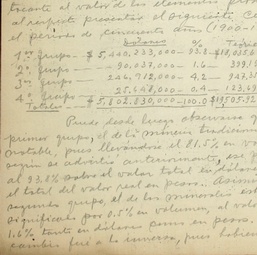 tocante al valor de los elementos
al respecto presentar el siguiente
el período de cincuenta años (1900-1
Dólares %
1er Grupo - $ 5,440,233,000 - 93.8 -
2º Grupo - 90,037,000 - 1.6 - 399,19
3er Grupo - 246,912,000 - 4.2 - 947,38
4º Grupo - 25,648,000 - 0.4 - 123,69
Totales - $ 5,802,830,000 - 100.0 - $19505.92
Puede desde luego observarse q
primer grupo, el de la minería tradicion
notable, pues llevándose el 81.5% en vo
según se advirtió anteriormente, ese p
al 93.8% sobre el valor total en dólares
el total del valor real en pesos.
segundo grupo, el de los minerales
significaba por 0.5% en volumen, al valor
1.6% tanto en dólares como en pesos.
cambio fué a la inversa, pues habien